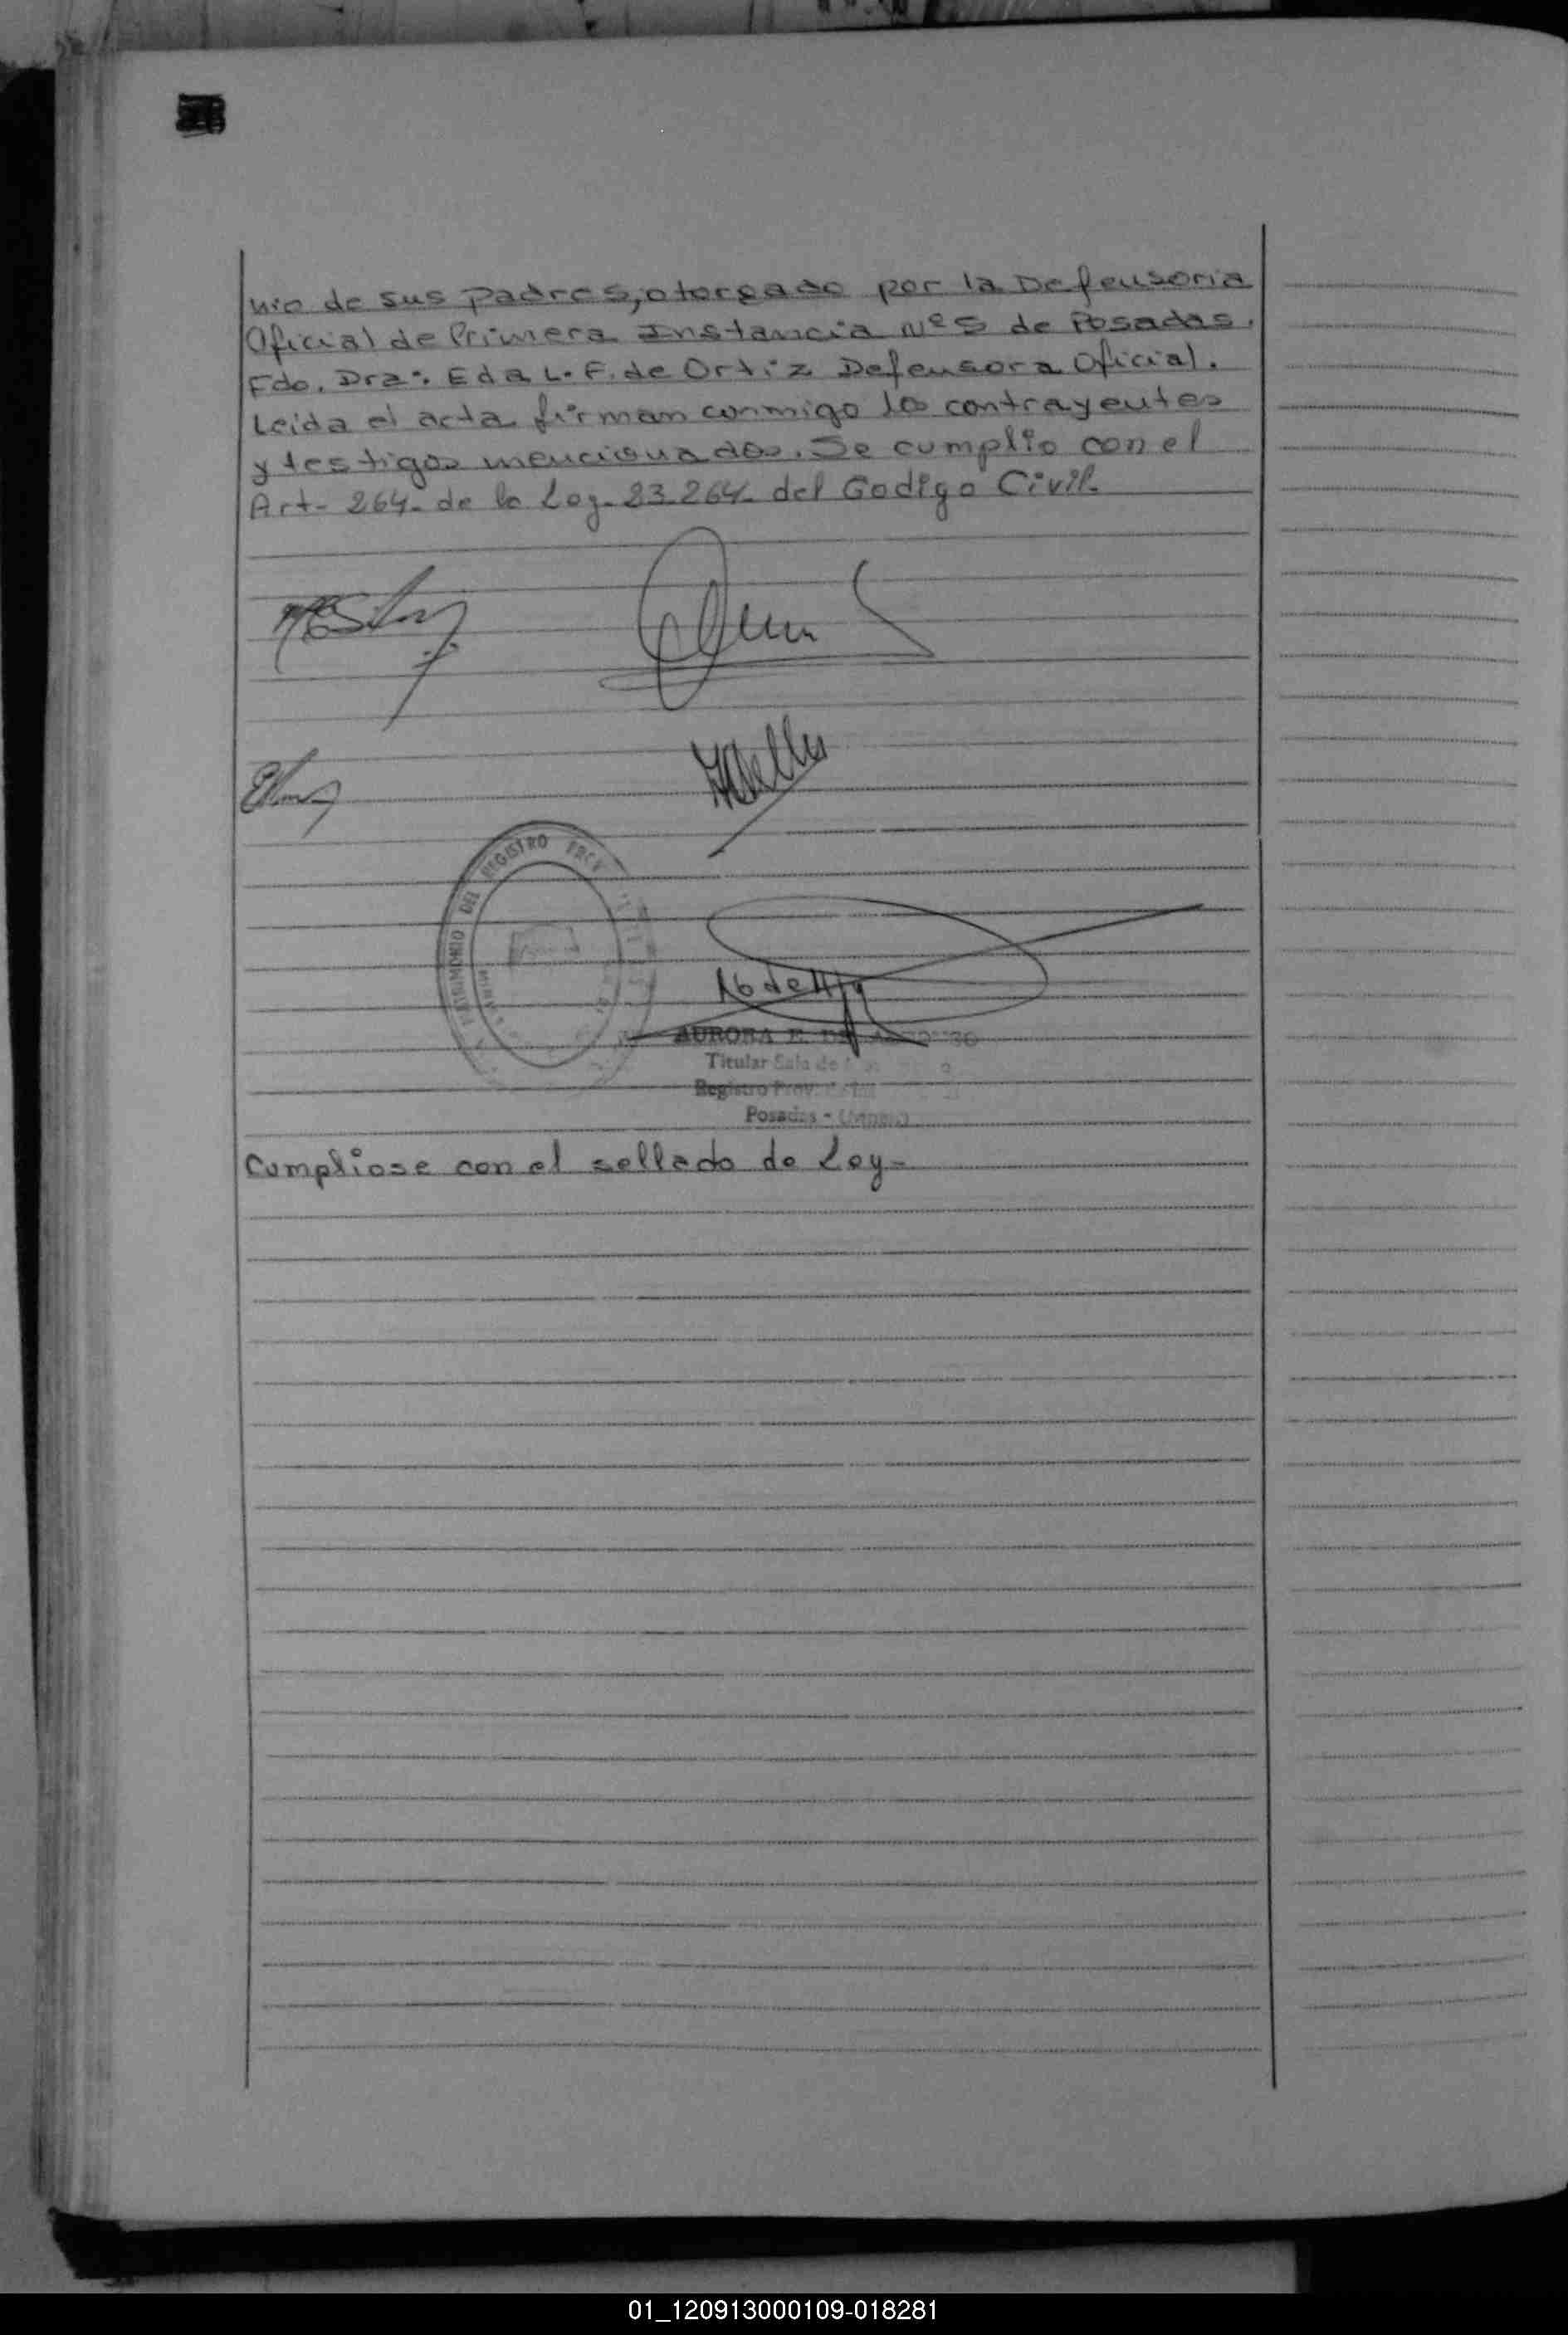 nio de sus padres, otorgado por la Defensoria
Oficial de Primera Instancia Nº 5 de Posadas.
Fdo. Dra. Eda L. F. de Ortiz Defensora Oficial.
Leida el acta firman conmigo los contrayentes
y testigos mencionados. Se cumplio con el
Art- 264- de la Ley- 23.264- del Codigo Civil-
MATRIMONIO DEL REGISTRO PROV
AURORA E. DE
Titular Sala de
Registro Prov.
Posadas - (Mnes.)
Cumpliose con el sellado de Ley-
01_120913000109-018281